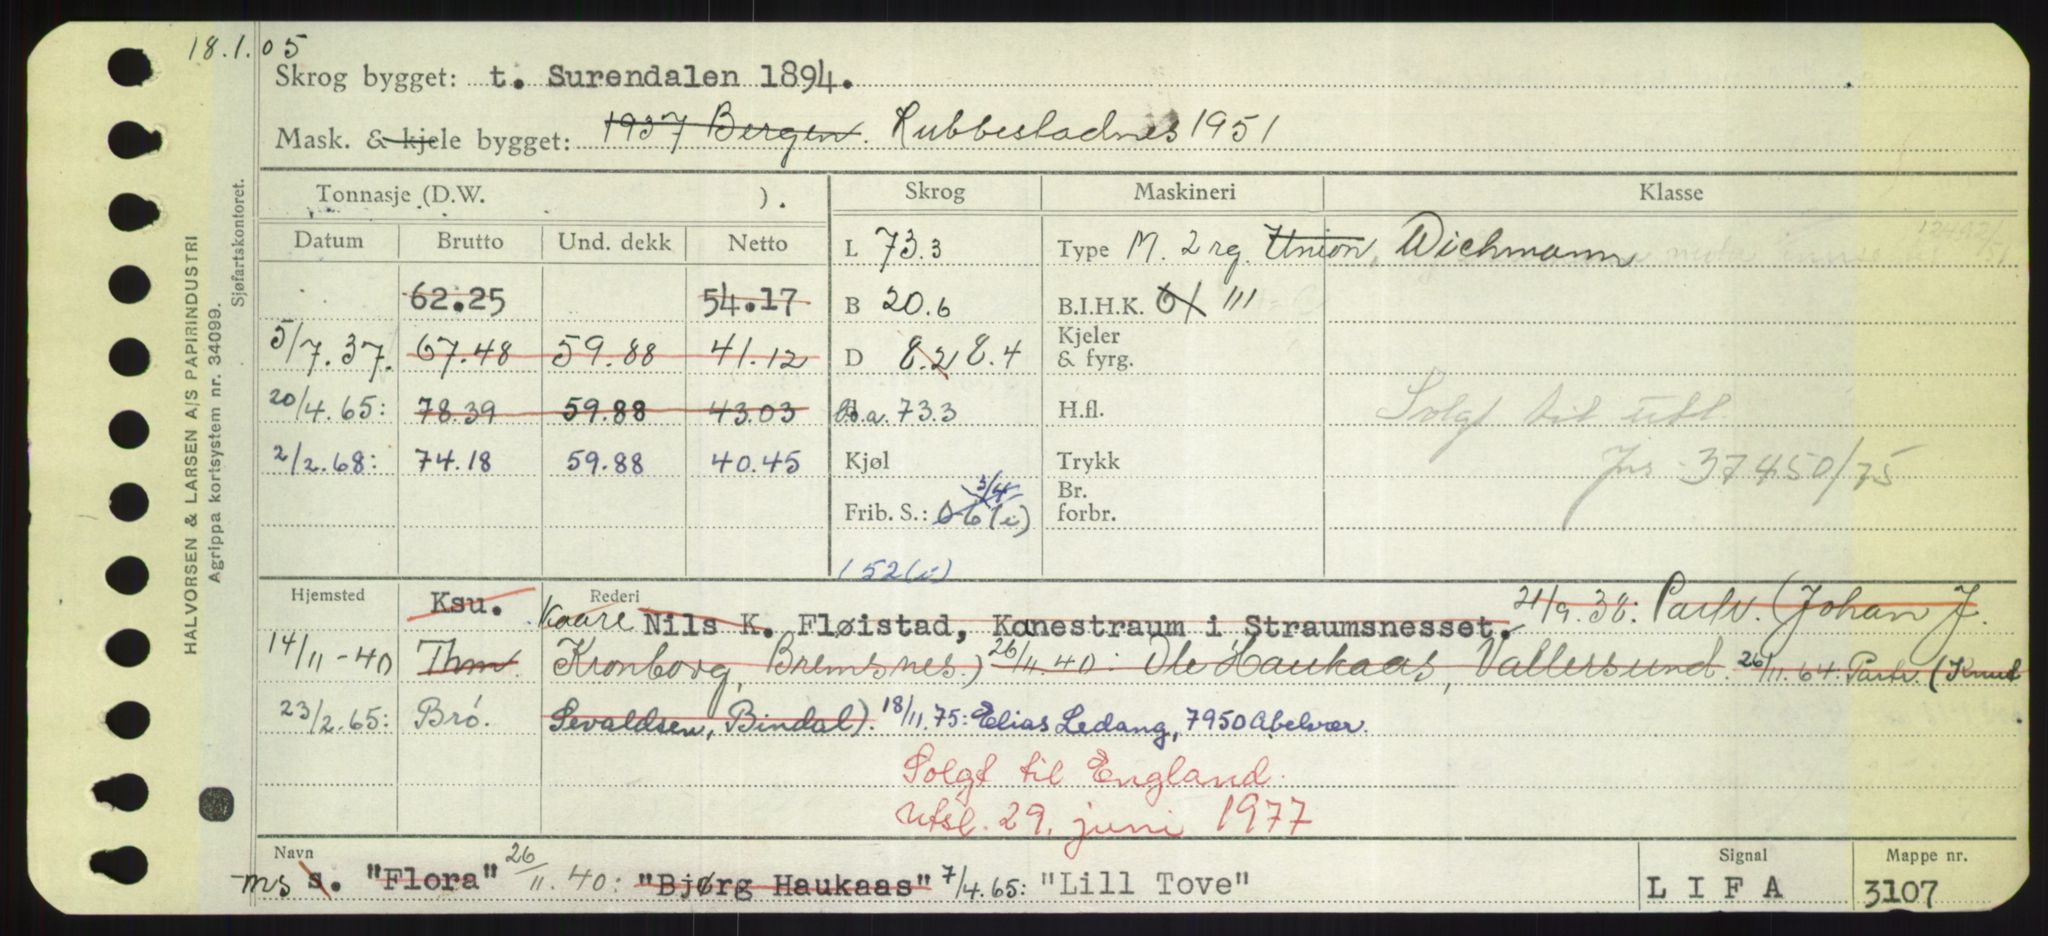 18.1.05
Skrog bygget: t. Surendalen 1894.
Mask. & kjele bygget: 1937 Bergen. Rubbestadnes 1951
Tonnasje (D.W. ).
Skrog Maskineri Klasse
Datum Brutto Und. dekk Netto
L 73.3 Type M. 2 rg. Union, Wichmann
62.25 54.17
B 20.6 B.I.H.K. 61 111
5/7.37. 67.48 59.88 41.12
D 8.2 8.4 Kjeler & fyrg.
20/4.65: 78.39 59.88 43.03
73.3 H.fl. Solgt til utl.
2/2.68: 74.18 59.88 40.45
Kjøl Trykk Jns 37450/75
Frib. S.: 3/4 Br. forbr.
152(i)
Hjemsted Ksu. Rederi Kaare Nils K. Fløistad, Kanestraum i Straumsnesset. 21/9.38: Partr. (Johan J.
14/11-40 Thm. Kronborg, Bremsnes.) 26/11.40: Ole Haukaas, Vallersund. 26/11.64: Partr. (Knut
23/2.65: Brö. Sevaldsen, Bindal). 18/11.75: Elias Ledang, 7950 Abelvær.
Solgt til England.
Utsl. 29. juni 1977
Navn Signal Mappe nr.
ms s. "Flora" 26/11.40: "Bjørg Haukaas" 7/4.65: "Lill Tove" LIFA 3107
HALVORSEN & LARSEN A/S PAPIRINDUSTRI
Agrippa kortsystem nr. 34099.
Sjøfartskontoret.